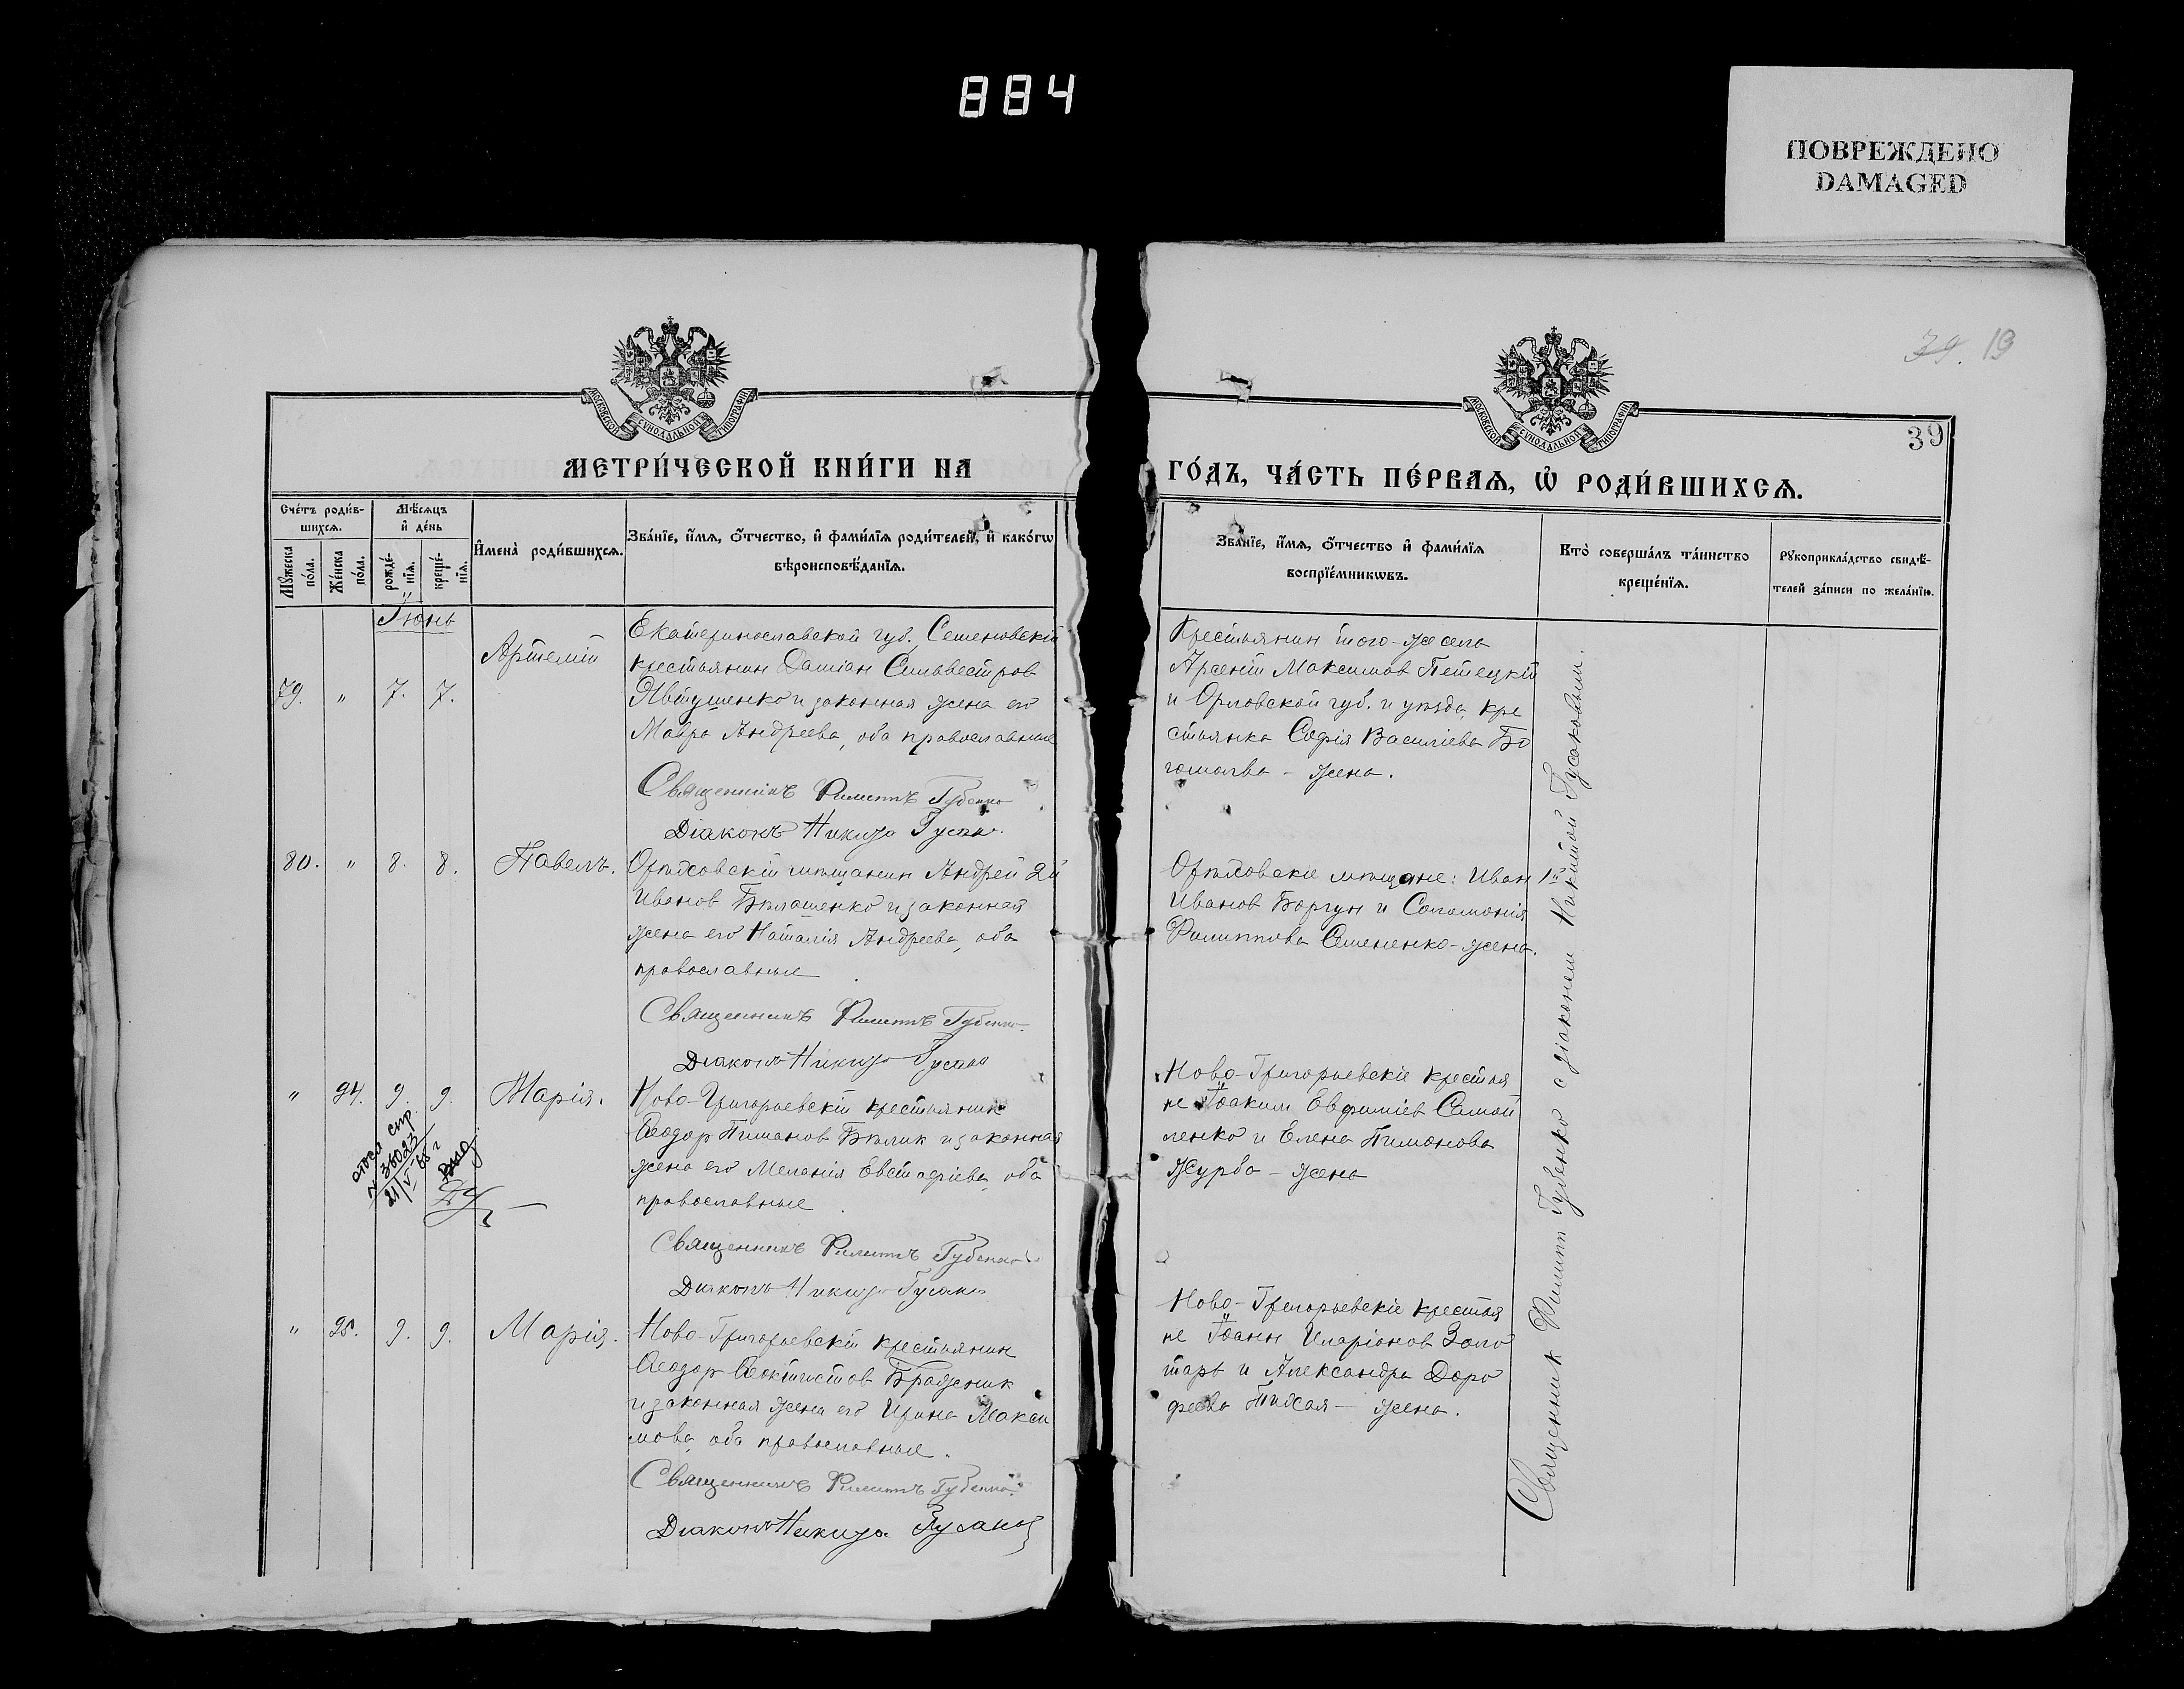 884
ПОВРЕЖДЕНО
DAMAGED
39. 19
39
МОСКОВСКОЙ СУНОДАЛЬНОЙ ТИПОГРАФІИ
МОСКОВСКОЙ СУНОДАЛЬНОЙ ТИПОГРАФІИ
МЕТРИ́ЧЕСКОЙ КНИ́ГИ НА
ГО́ДЪ, ЧА́СТЬ ПЕ́РВАѦ, Ѡ҆ РОДИ́ВШИХСѦ.
Сче́тъ роди́в-
шихсѧ.
Мꙋ́жеска
по́ла.
Же́нска
по́ла.
Мѣ́сѧцъ
и҆ де́нь
рожде́-
нїѧ.
креще́-
нїѧ.
И҆мена̀ роди́вшихсѧ.
Зва́нїе, и҆́мѧ, ѻ҆́тчество, и҆ фами́лїѧ роди́телей, и҆ како́гѡ
вѣроисповѣ́данїѧ.
Зва́нїе, и҆́мѧ, ѻ҆́тчество и҆ фами́лїѧ
воспрїе́мникѡвъ.
Кто̀ соверша́лъ та́инство
креще́нїѧ.
Рꙋкоприкла́дство свидѣ́-
телей за́писи по жела́нїю.
Іюнь
79. " 7. 7. Артемій
Екатеринославской губ. Семеновскій
крестьянин Даміан Сильвестров
Явтушенко и законная жена его
Мавра Андреева, оба православные
Священникъ Филиппъ Губенко
Діаконъ Никита Гусаков
Крестьянин того-же села
Арсеній Максимов Петецкій
и Орловской губ. и уѣзда, кре
стьянка Софія Василіева Бо
гомолва - жена.
80. " 8. 8. Павелъ.
Орѣховскій мѣщанин Андрей 2й
Иванов Бѣлашенко и законная
жена его Наталія Андреева, оба
православные
Священникъ Филиппъ Губенко
Діаконъ Никита Гусаков
Орѣховскіе мѣщане: Иван 1й
Иванов Боргун и Соломонія
Филиппова Семененко - жена.
" 94. 9. 9. Марія.
стр.
№ 36023
21/V 68 г
Ново-Григорьевскій крестьянин
Ѳеодор Пиманов Бѣлик и законная
жена его Меланія Евстафіева, оба
православные
Священникъ Филиппъ Губенко
Діаконъ Никита Гусаков
Ново-Григорьевскіе крестья
не Іоаким Евфиміев Самой
ленко и Елена Пимонова
Журба - жена
" 95. 9. 9. Марія.
Ново-Григорьевскій крестьянин
Ѳеодор Ѳеоктистов Бражник
и законная жена его Ирина Макси
мова, оба православные.
Священникъ Филиппъ Губенко
Діаконъ Никита Гусаков
Ново-Григорьевскіе крестья
не Іоанн Иларіонов Золо
тарь и Александра Доро
феева Тихая - жена.
Священник Филипп Губенко с діаконем Никитой Гусаковым.